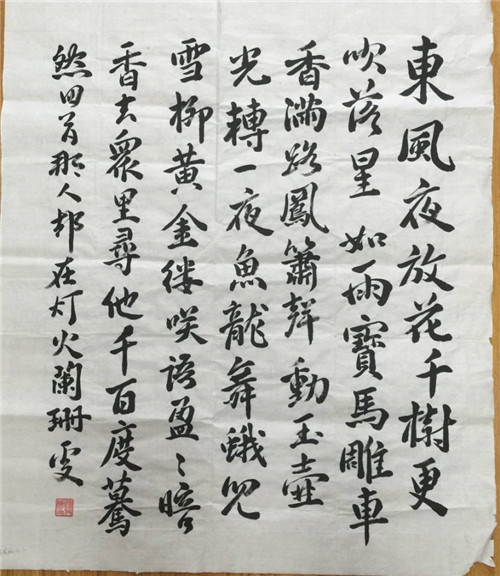 東風夜放花千樹更
吹落星如雨寶馬雕車
香滿路鳳簫聲動玉壺
光轉一夜魚龍舞蛾兒
雪柳黃金縷咲語盈〻暗
香去眾里尋他千百度驀
然回首那人却在灯火闌珊處